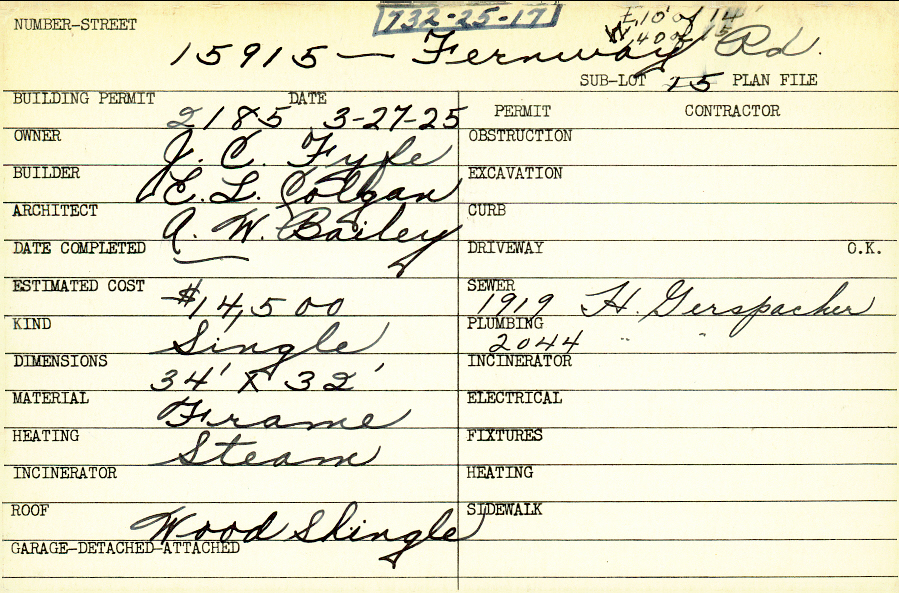 732-25-17
E, 10' of 14
W, 40 of 15
NUMBER-STREET 15915 — Fernway Rd.
SUB-LOT 15 PLAN FILE
BUILDING PERMIT 2185 DATE 3-27-25
PERMIT CONTRACTOR
OWNER J. C. Fyfe
OBSTRUCTION
BUILDER E. L. Colgan
EXCAVATION
ARCHITECT A. W. Bailey
CURB
DATE COMPLETED
DRIVEWAY O.K.
ESTIMATED COST $14,500
SEWER 1919 H. Gerspacher
KIND Single
PLUMBING 2044 " "
DIMENSIONS 34' X 32'
INCINERATOR
MATERIAL Frame
ELECTRICAL
HEATING Steam
FIXTURES
INCINERATOR
HEATING
ROOF Wood Shingle
SIDEWALK
GARAGE-DETACHED-ATTACHED